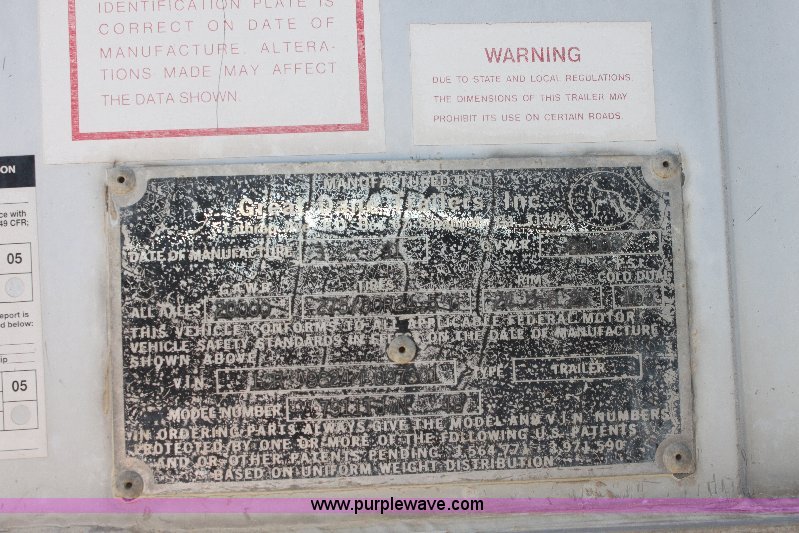 IDENTIFICATION PLATE IS
CORRECT ON DATE OF
MANUFACTURE. ALTERA-
TIONS MADE MAY AFFECT
THE DATA SHOWN.
WARNING
DUE TO STATE AND LOCAL REGULATIONS,
THE DIMENSIONS OF THIS TRAILER MAY
PROHIBIT ITS USE ON CERTAIN ROADS.
ON
ce with
49 CFR;
05
eport is
d below:
ip
05
MANUFACTURED BY
Great Dane Trailers, Inc.
DATE OF MANUFACTURE
G.V.W.R.
G.A.W.R. TIRES RIMS COLD
ALL AXLES 20000
THIS VEHICLE CONFORMS TO ALL APPLICABLE FEDERAL MOTOR
VEHICLE SAFETY STANDARDS IN EFFECT ON THE DATE OF MANUFACTURE
SHOWN ABOVE
V.I.N. TYPE TRAILER
MODEL NUMBER
IN ORDERING PARTS ALWAYS GIVE THE MODEL AND V.I.N. NUMBERS
PROTECTED BY ONE OR MORE OF THE FOLLOWING U.S. PATENTS
AND OR OTHER PATENTS PENDING 3,564,771 3,971,590
BASED ON UNIFORM WEIGHT DISTRIBUTION
www.purplewave.com